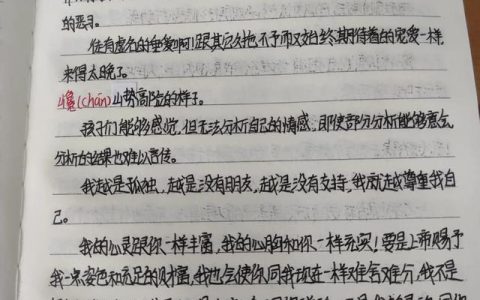 的恶习。
徒有虚名的垂爱啊!跟其它处抱不予而又始终期待着的宠爱一样,
来得太晚了。
巉(chán)山势高险的样子。
孩子们能够感觉,但无法分析自己的情感,即使部分分析能够意会,
分析的结果也难以言传。
我越是孤独,越是没有朋友,越是没有支持,我就越尊重我自
己。
我的心灵跟你一样丰富,我的心胸和你一样充实!要是上帝赐予
我一点姿色和充足的财富,我也会使你同我现在一样难舍难分,我不是